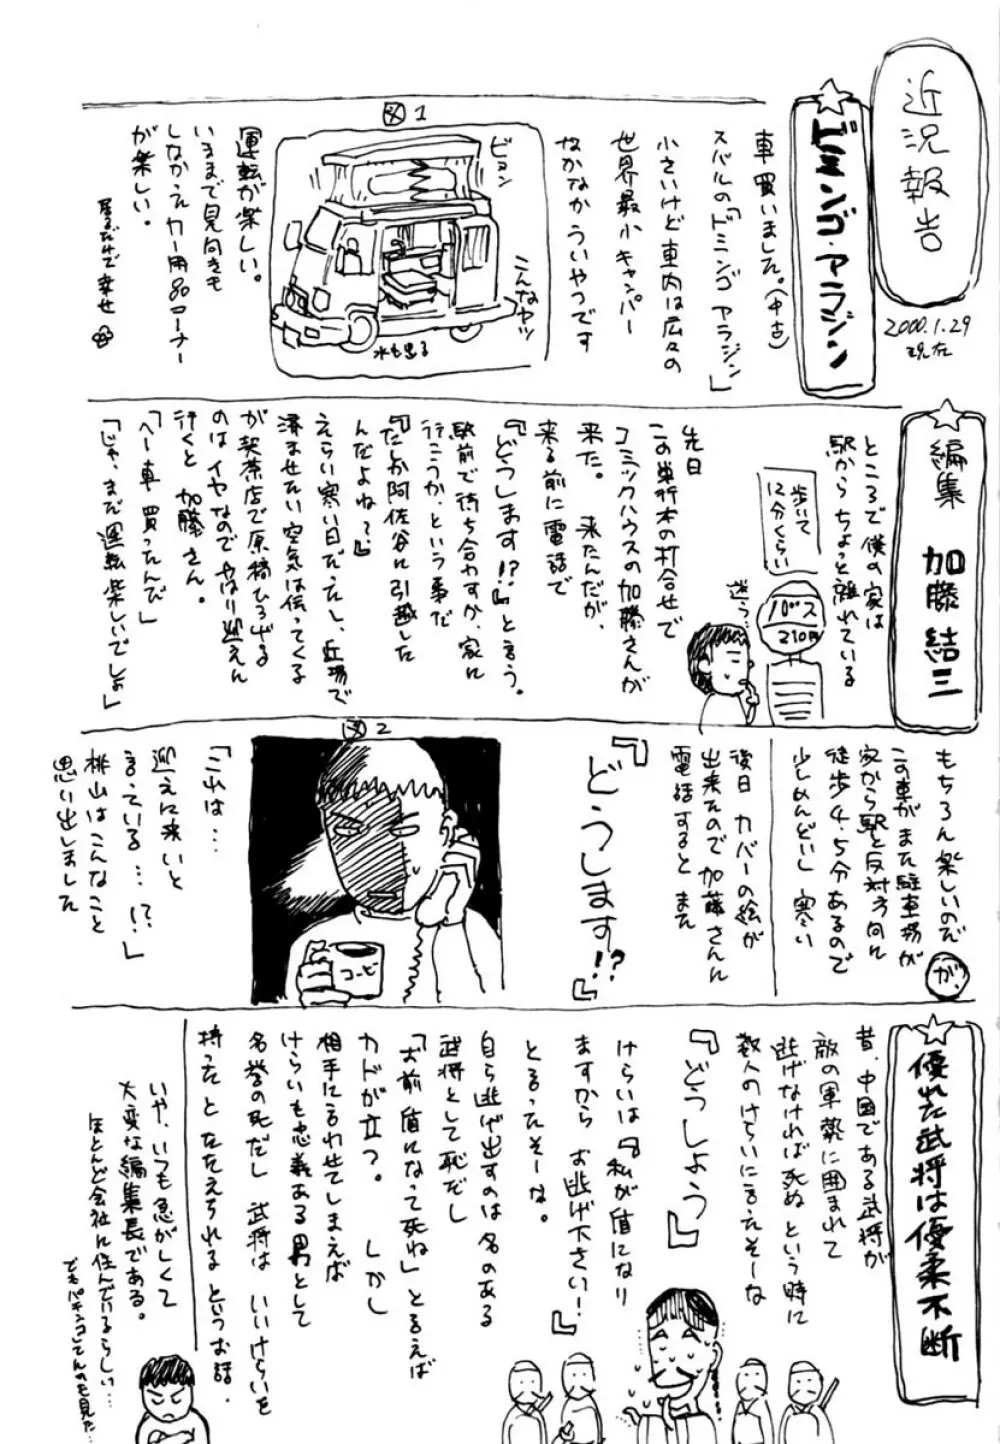 近況報告
2000.1.29
現在
ドミンゴ・アラジン
車買いました。(中古)
スバルの「ドミンゴアラジン」
小さいけど車内は広々の
世界最小キャンパー
なかなかういやつです
図1
ビヨン
こんなヤツ
水も出る
運転が楽しい。
いままで見向きも
しなかったカー用品コーナー
が楽しい。
居るだけで幸せ
編集 加藤結三
ところで僕の家は
駅からちょっと離れている
歩いて
12分くらい
バス
210円
迷う…
先日
この単行本の打合せで
コミックハウスの加藤さんが
来た。来たんだが、
来る前に電話で
『どうします!?』と言う。
駅前で待ち合わすか、家に
行こうか、という事だ
『たしか阿佐谷に引越した
んだよね?』
えらい寒い日だったし、近場で
済ませたい空気は伝ってくる
が喫茶店で原稿ひろげる
のはイヤなのでやはり迎えに
行くと 加藤さん。
「へー車買ったんだ」
「じゃ、まだ運転楽しいでしょ」
もちろん楽しいのだ
が、
この車がまた駐車場が
家から駅と反対方向に
徒歩4.5分あるので
少しめんどいし寒い
後日カバーの絵が
出来たので加藤さんに
電話するとまた
『どうします!?』
図2
コーヒー
「これは…
迎えに来いと
言っている…!?」
桃山はこんなこと
思い出しました
優れた武将は優柔不断
昔、中国である武将が
敵の軍勢に囲まれて
逃げなければ死ぬという時に
数人のけらいに言ったそーな
『どうしよう』
けらいは『私が盾になり
ますからお逃げ下さい!』
と言ったそーな。
自ら逃げ出すのは名のある
武将として恥だし
「お前盾になって死ね」と言えば
カドが立つ。しかし
相手に言わせてしまえば
けらいも忠義ある男として
名誉の死だし武将は いいけらいを
持ったとたたえられるというお話。
いや、いつも急がしくて
大変な編集長である。
ほとんど会社に住んでいるらしい…
でもパチンコしてんのも見た…